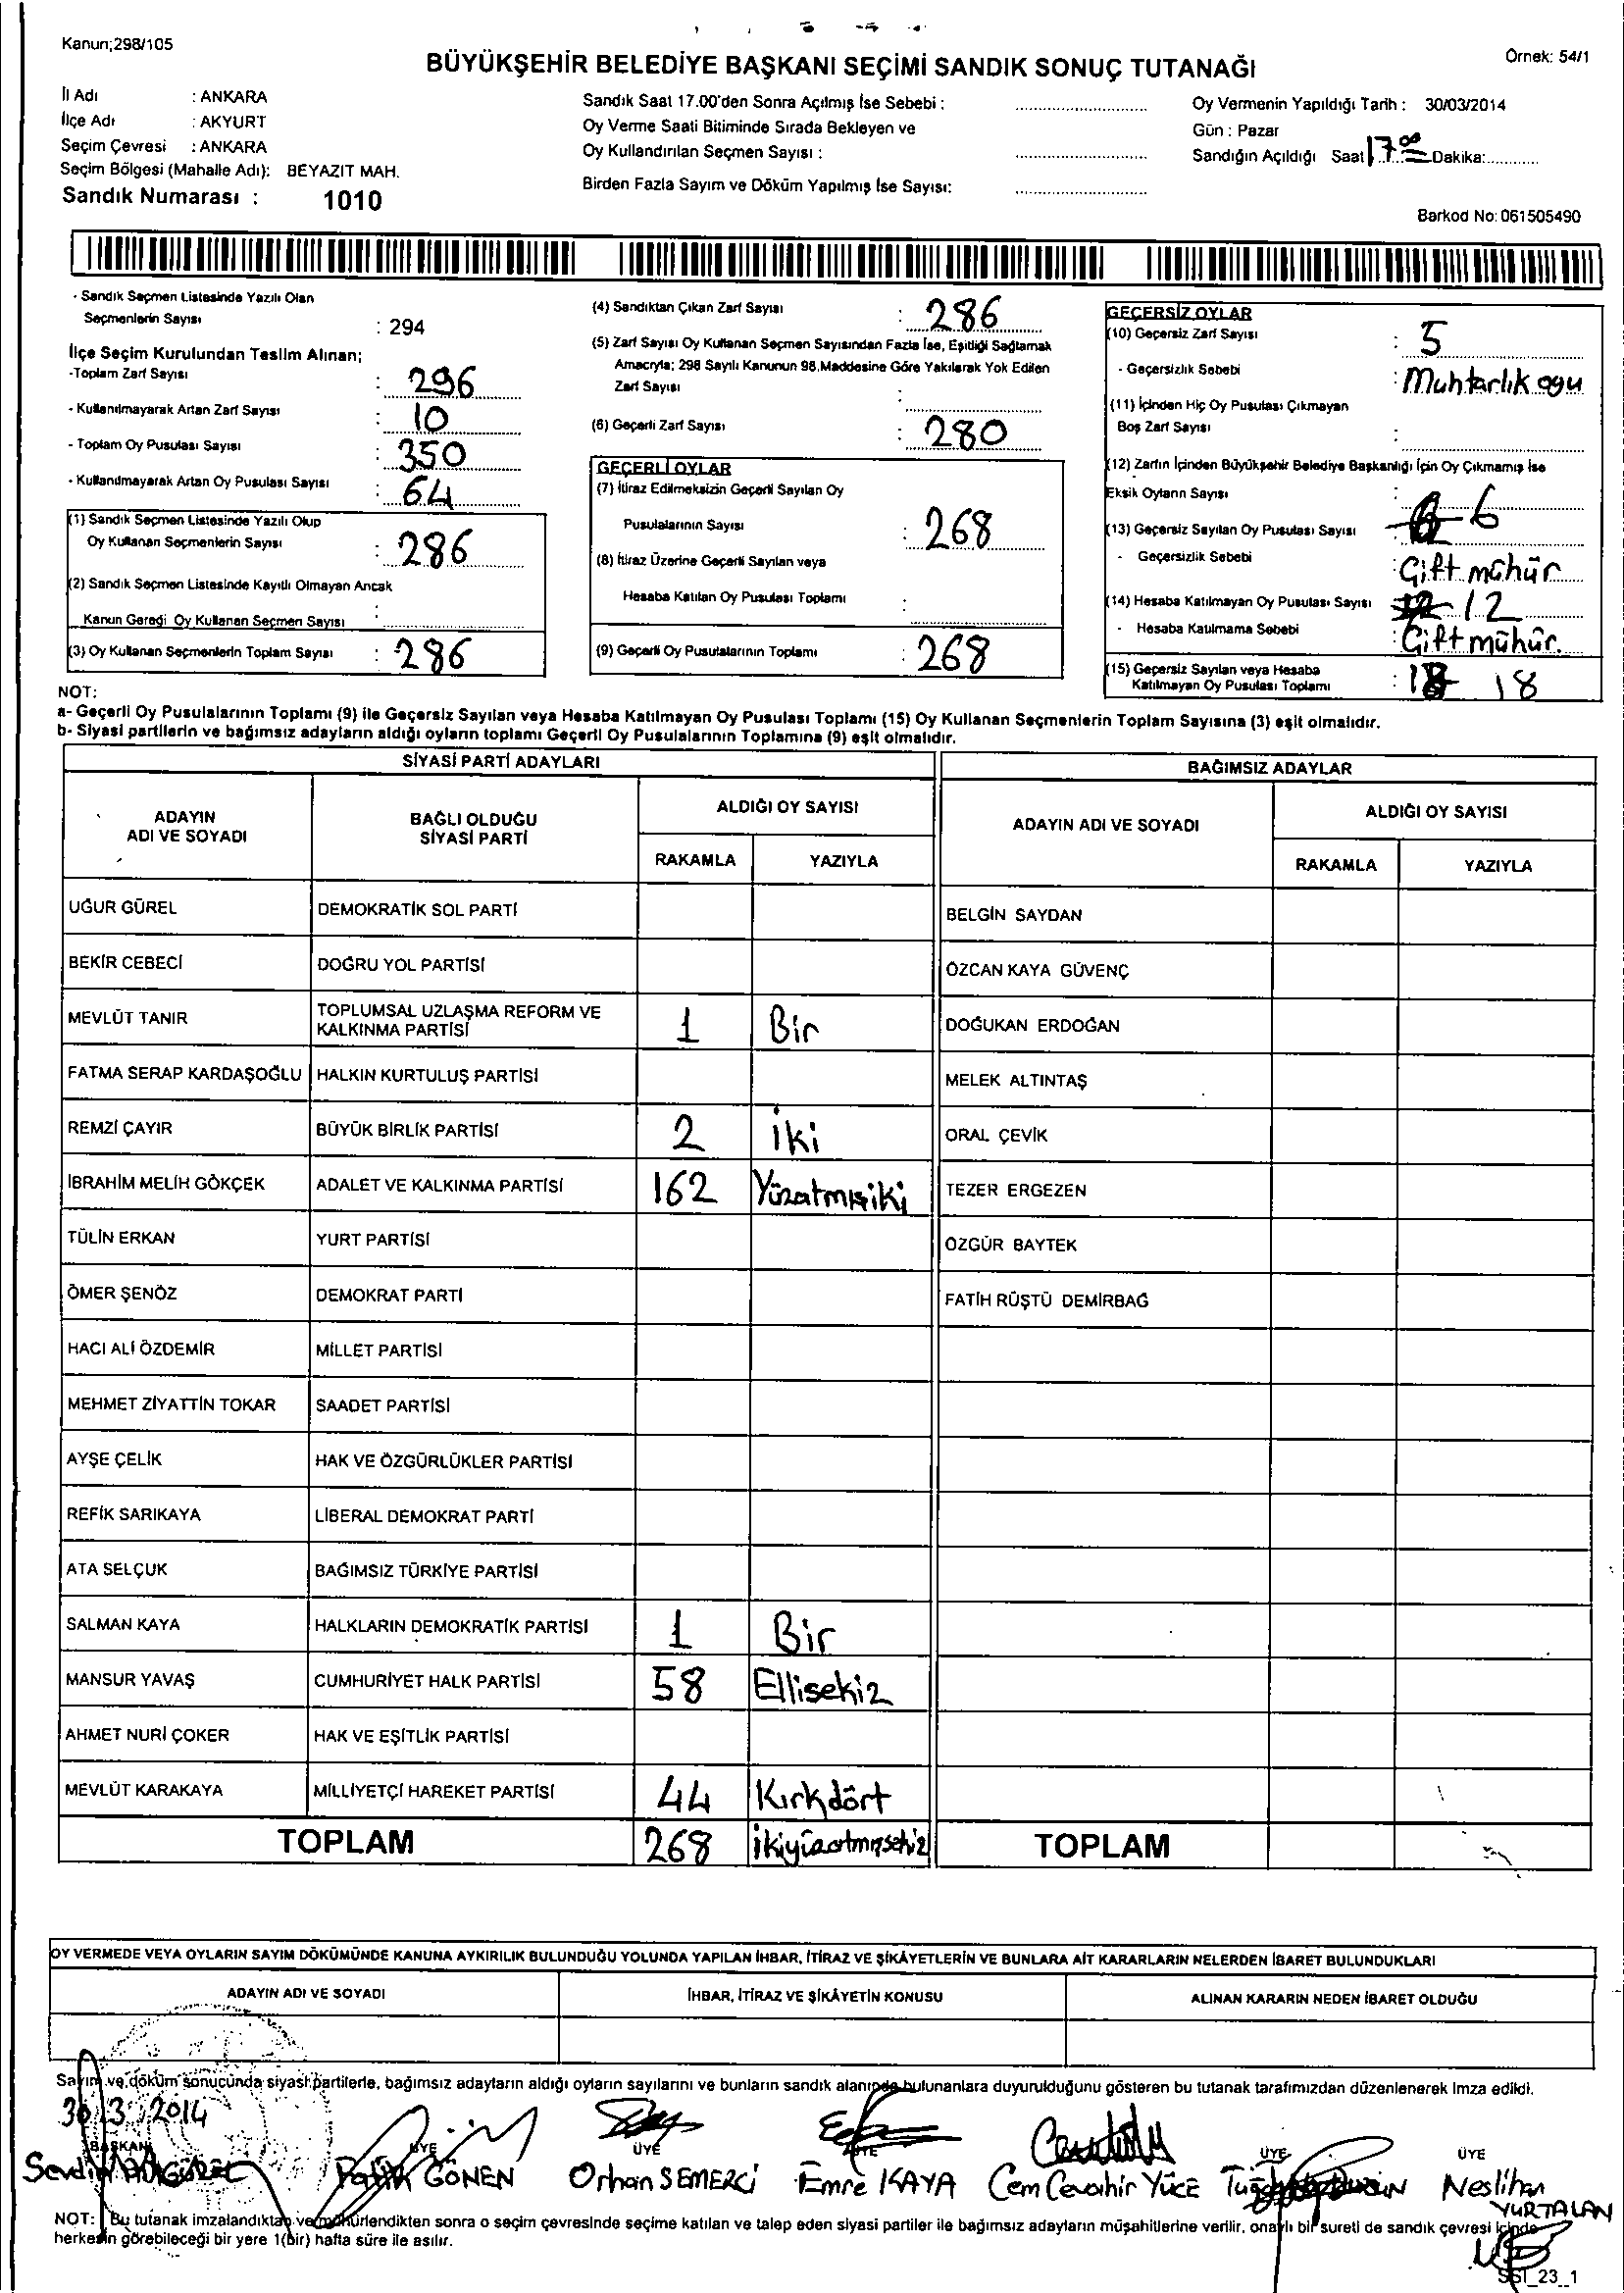 Kanun;298/105
Örnek: 54/1
BÜYÜKŞEHİR BELEDİYE BAŞKANI SEÇİMİ SANDIK SONUÇ TUTANAĞI
İl Adı : ANKARA
İlçe Adı : AKYURT
Seçim Çevresi : ANKARA
Seçim Bölgesi (Mahalle Adı): BEYAZIT MAH.
Sandık Numarası : 1010
Sandık Saat 17.00'den Sonra Açılmış İse Sebebi :
Oy Verme Saati Bitiminde Sırada Bekleyen ve
Oy Kullandırılan Seçmen Sayısı :
Birden Fazla Sayım ve Döküm Yapılmış İse Sayısı:
Oy Vermenin Yapıldığı Tarih : 30/03/2014
Gün : Pazar
Sandığın Açıldığı Saat 17.00 Dakika:
Barkod No: 061505490
- Sandık Seçmen Listesinde Yazılı Olan
Seçmenlerin Sayısı : 294
İlçe Seçim Kurulundan Teslim Alınan;
-Toplam Zarf Sayısı : 296
- Kullanılmayarak Artan Zarf Sayısı : 10
- Toplam Oy Pusulası Sayısı : 350
- Kullanılmayarak Artan Oy Pusulası Sayısı : 64
(1) Sandık Seçmen Listesinde Yazılı Olup
Oy Kullanan Seçmenlerin Sayısı : 286
(2) Sandık Seçmen Listesinde Kayıtlı Olmayan Ancak
Kanun Gereği Oy Kullanan Seçmen Sayısı :
(3) Oy Kullanan Seçmenlerin Toplam Sayısı : 286
(4) Sandıktan Çıkan Zarf Sayısı : 286
(5) Zarf Sayısı Oy Kullanan Seçmen Sayısından Fazla İse, Eşitliği Sağlamak
Amacıyla; 298 Sayılı Kanunun 98.Maddesine Göre Yakılarak Yok Edilen
Zarf Sayısı :
(6) Geçerli Zarf Sayısı : 280
GEÇERLİ OYLAR
(7) İtiraz Edilmeksizin Geçerli Sayılan Oy
Pusulalarının Sayısı : 268
(8) İtiraz Üzerine Geçerli Sayılan veya
Hesaba Katılan Oy Pusulası Toplamı :
(9) Geçerli Oy Pusulalarının Toplamı : 268
GEÇERSİZ OYLAR
(10) Geçersiz Zarf Sayısı : 5
- Geçersizlik Sebebi : Muhtarlık ogu
(11) İçinden Hiç Oy Pusulası Çıkmayan
Boş Zarf Sayısı :
(12) Zarfın İçinden Büyükşehir Belediye Başkanlığı İçin Oy Çıkmamış İse
Eksik Oyların Sayısı :
(13) Geçersiz Sayılan Oy Pusulası Sayısı 6
- Geçersizlik Sebebi : Çift mühür
(14) Hesaba Katılmayan Oy Pusulası Sayısı 12
- Hesaba Katılmama Sebebi : Çift mühür.
(15) Geçersiz Sayılan veya Hesaba
Katılmayan Oy Pusulası Toplamı : 18
NOT:
a- Geçerli Oy Pusulalarının Toplamı (9) ile Geçersiz Sayılan veya Hesaba Katılmayan Oy Pusulası Toplamı (15) Oy Kullanan Seçmenlerin Toplam Sayısına (3) eşit olmalıdır.
b- Siyasi partilerin ve bağımsız adayların aldığı oyların toplamı Geçerli Oy Pusulalarının Toplamına (9) eşit olmalıdır.
SİYASİ PARTİ ADAYLARI
ADAYIN ADI VE SOYADI BAĞLI OLDUĞU SİYASİ PARTİ ALDIĞI OY SAYISI
RAKAMLA YAZIYLA
UĞUR GÜREL DEMOKRATİK SOL PARTİ
BEKİR CEBECİ DOĞRU YOL PARTİSİ
MEVLÜT TANIR TOPLUMSAL UZLAŞMA REFORM VE KALKINMA PARTİSİ 1 Bir
FATMA SERAP KARDAŞOĞLU HALKIN KURTULUŞ PARTİSİ
REMZİ ÇAYIR BÜYÜK BİRLİK PARTİSİ 2 İki
İBRAHİM MELİH GÖKÇEK ADALET VE KALKINMA PARTİSİ 162 Yüzatmışiki
TÜLİN ERKAN YURT PARTİSİ
ÖMER ŞENÖZ DEMOKRAT PARTİ
HACI ALİ ÖZDEMİR MİLLET PARTİSİ
MEHMET ZİYATTİN TOKAR SAADET PARTİSİ
AYŞE ÇELİK HAK VE ÖZGÜRLÜKLER PARTİSİ
REFİK SARIKAYA LİBERAL DEMOKRAT PARTİ
ATA SELÇUK BAĞIMSIZ TÜRKİYE PARTİSİ
SALMAN KAYA HALKLARIN DEMOKRATİK PARTİSİ 1 Bir
MANSUR YAVAŞ CUMHURİYET HALK PARTİSİ 58 Ellisekiz
AHMET NURİ ÇOKER HAK VE EŞİTLİK PARTİSİ
MEVLÜT KARAKAYA MİLLİYETÇİ HAREKET PARTİSİ 44 Kırkdört
TOPLAM 268 İkiyüzatmışsekiz
BAĞIMSIZ ADAYLAR
ADAYIN ADI VE SOYADI ALDIĞI OY SAYISI
RAKAMLA YAZIYLA
BELGİN SAYDAN
ÖZCAN KAYA GÜVENÇ
DOĞUKAN ERDOĞAN
MELEK ALTINTAŞ
ORAL ÇEVİK
TEZER ERGEZEN
ÖZGÜR BAYTEK
FATİH RÜŞTÜ DEMİRBAĞ
TOPLAM
OY VERMEDE VEYA OYLARIN SAYIM DÖKÜMÜNDE KANUNA AYKIRILIK BULUNDUĞU YOLUNDA YAPILAN İHBAR, İTİRAZ VE ŞİKÂYETLERİN VE BUNLARA AİT KARARLARIN NELERDEN İBARET BULUNDUKLARI
ADAYIN ADI VE SOYADI İHBAR, İTİRAZ VE ŞİKÂYETİN KONUSU ALINAN KARARIN NEDEN İBARET OLDUĞU
Sayım ve döküm sonucunda siyasi partilerle, bağımsız adayların aldığı oyların sayılarını ve bunların sandık alanında bulunanlara duyurulduğunu gösteren bu tutanak tarafımızdan düzenlenerek imza edildi.
30/3/2014
BAŞKAN ÜYE ÜYE ÜYE ÜYE ÜYE
GÖNEN Orhan SEMERCİ Emre KAYA Cem Cevahir YÜCE Neslihan YURTALAN
NOT: Bu tutanak imzalandıktan ve mühürlendikten sonra o seçim çevresinde seçime katılan ve talep eden siyasi partiler ile bağımsız adayların müşahitlerine verilir, onaylı bir sureti de sandık çevresi içinde
herkesin görebileceği bir yere 1(bir) hafta süre ile asılır.
SSI_23_1